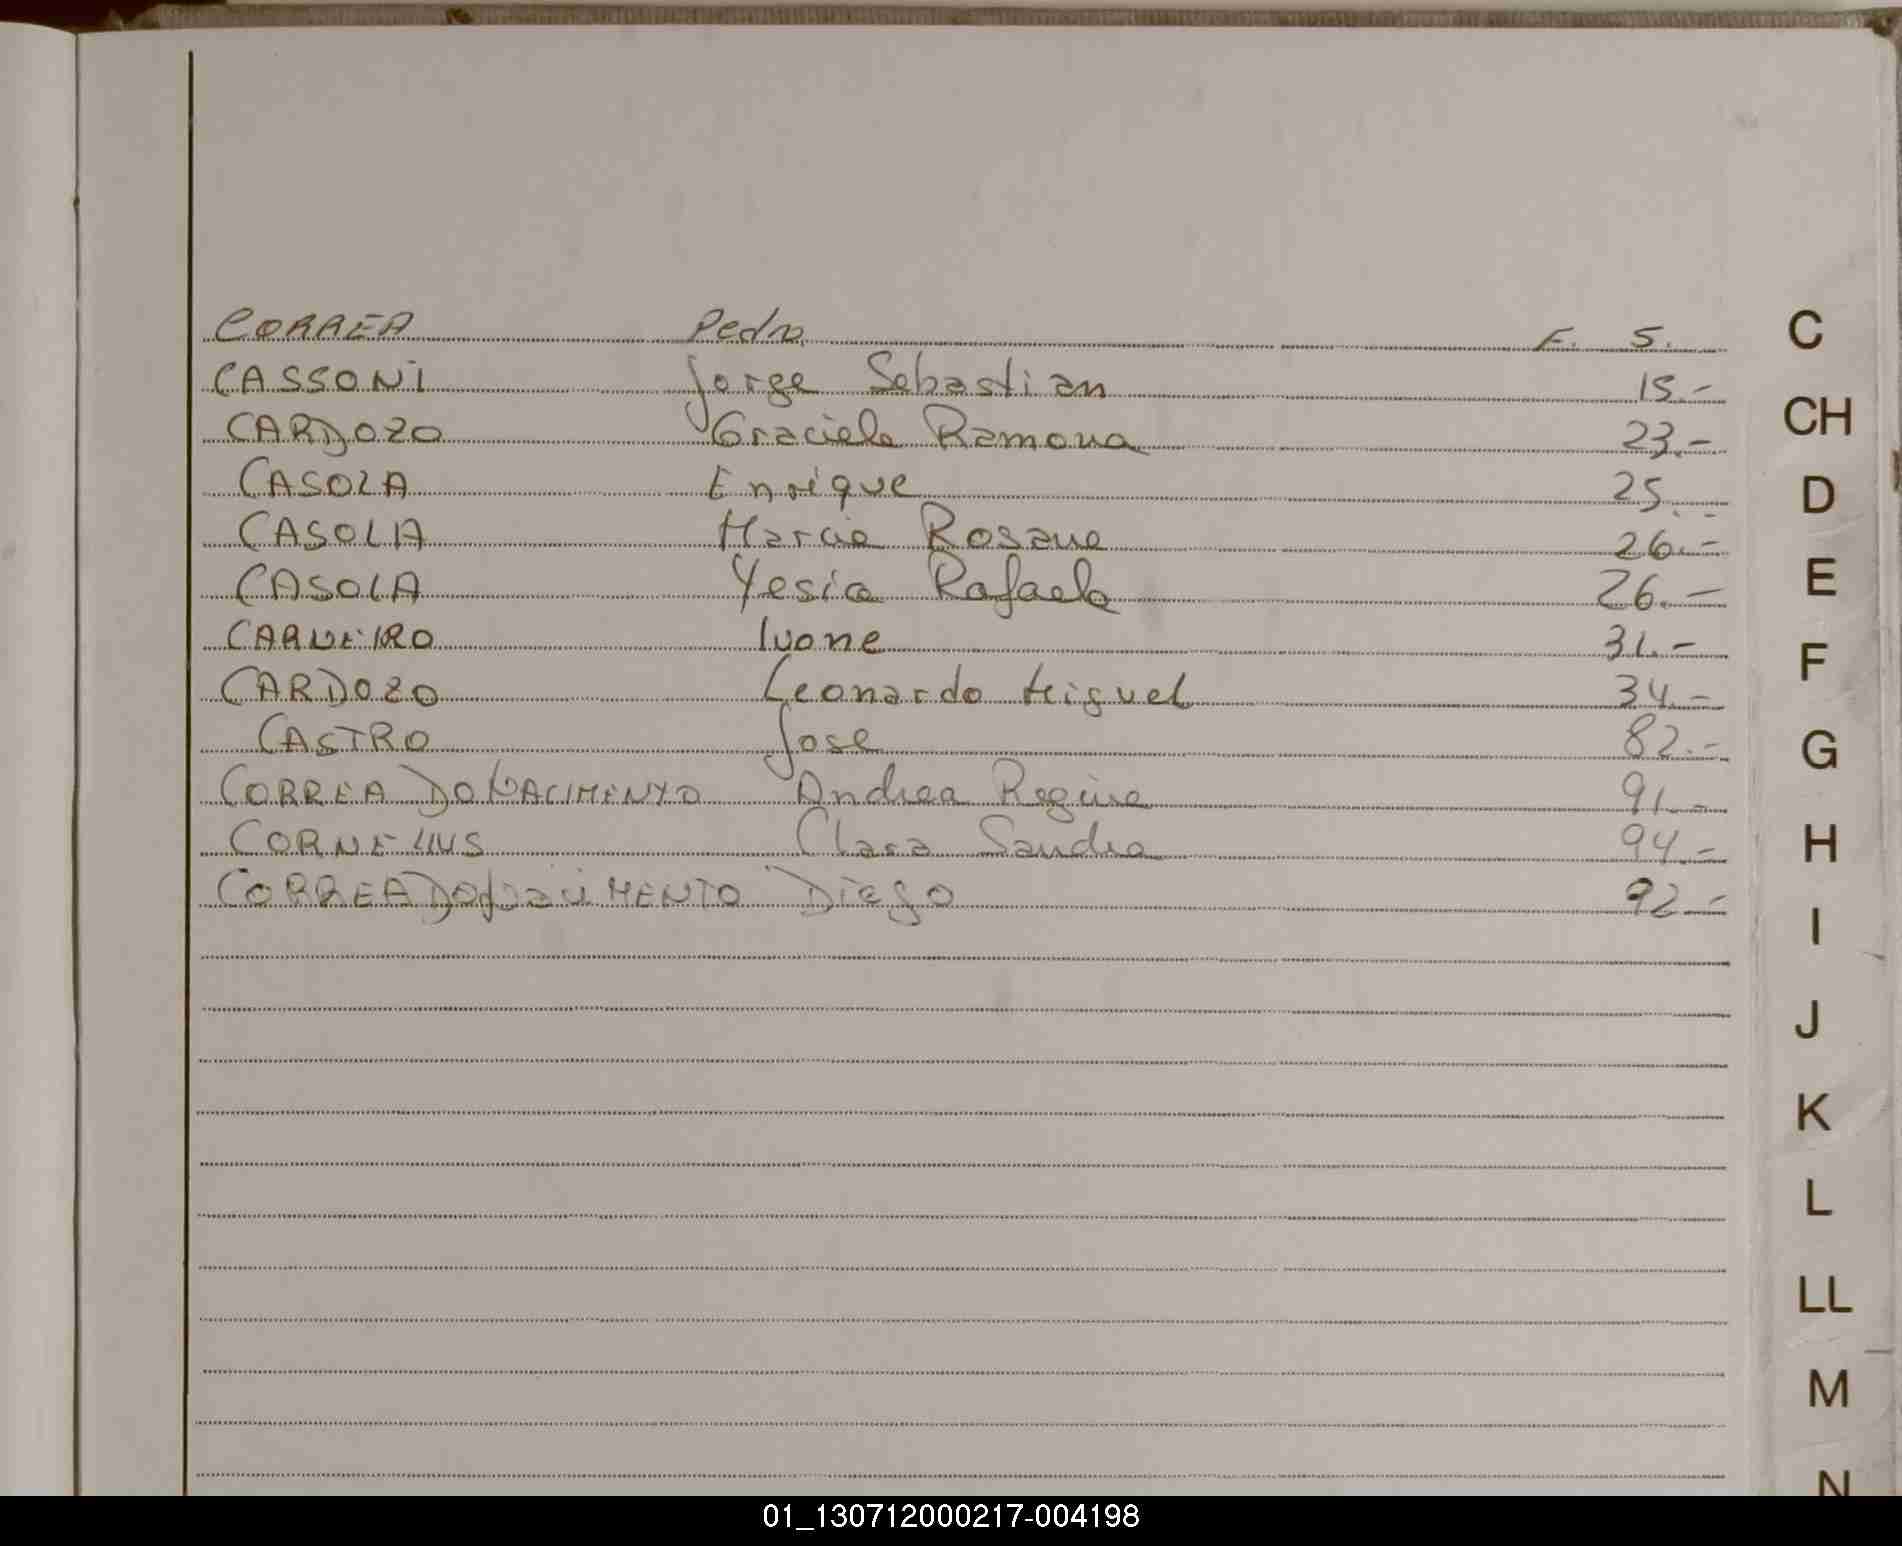 CORREA Pedro F. 5.
CASSONI Jorge Sebastian 15.-
CARDOZO Graciela Ramona 23.-
CASOLA Enrique 25.-
CASOLA Marcia Rosane 26.-
CASOLA Yesica Rafaela 26.-
CARNEIRO Ivone 31.-
CARDOZO Leonardo Miguel 34.-
CASTRO Jose 82.-
CORREA DO NACIMENTO Andrea Regina 91.-
CORNELIUS Clara Sandra 94.-
CORREA DO NaciMENTO Diego 92.-
C
CH
D
E
F
G
H
I
J
K
L
LL
M
N
01_130712000217-004198